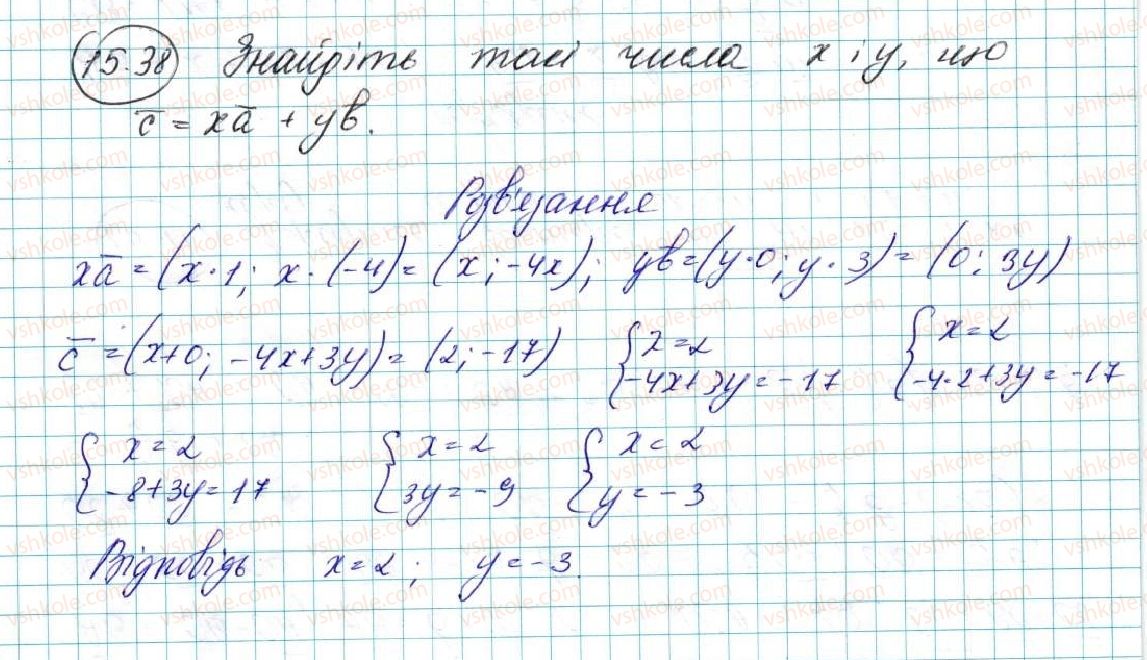 15.38 Знайдіть такі числа x і y, що
c̅ = xa̅ + yb̅.
Розв'язання
xa̅ = (x·1; x·(-4) = (x; -4x); yb̅ = (y·0; y·3) = (0; 3y)
c̅ = (x+0; -4x+3y) = (2; -17) { x = 2 -4x+3y = -17 { x = 2 -4·2+3y = -17
{ x = 2 -8+3y = 17 { x = 2 3y = -9 { x = 2 y = -3
Відповідь x = 2; y = -3.